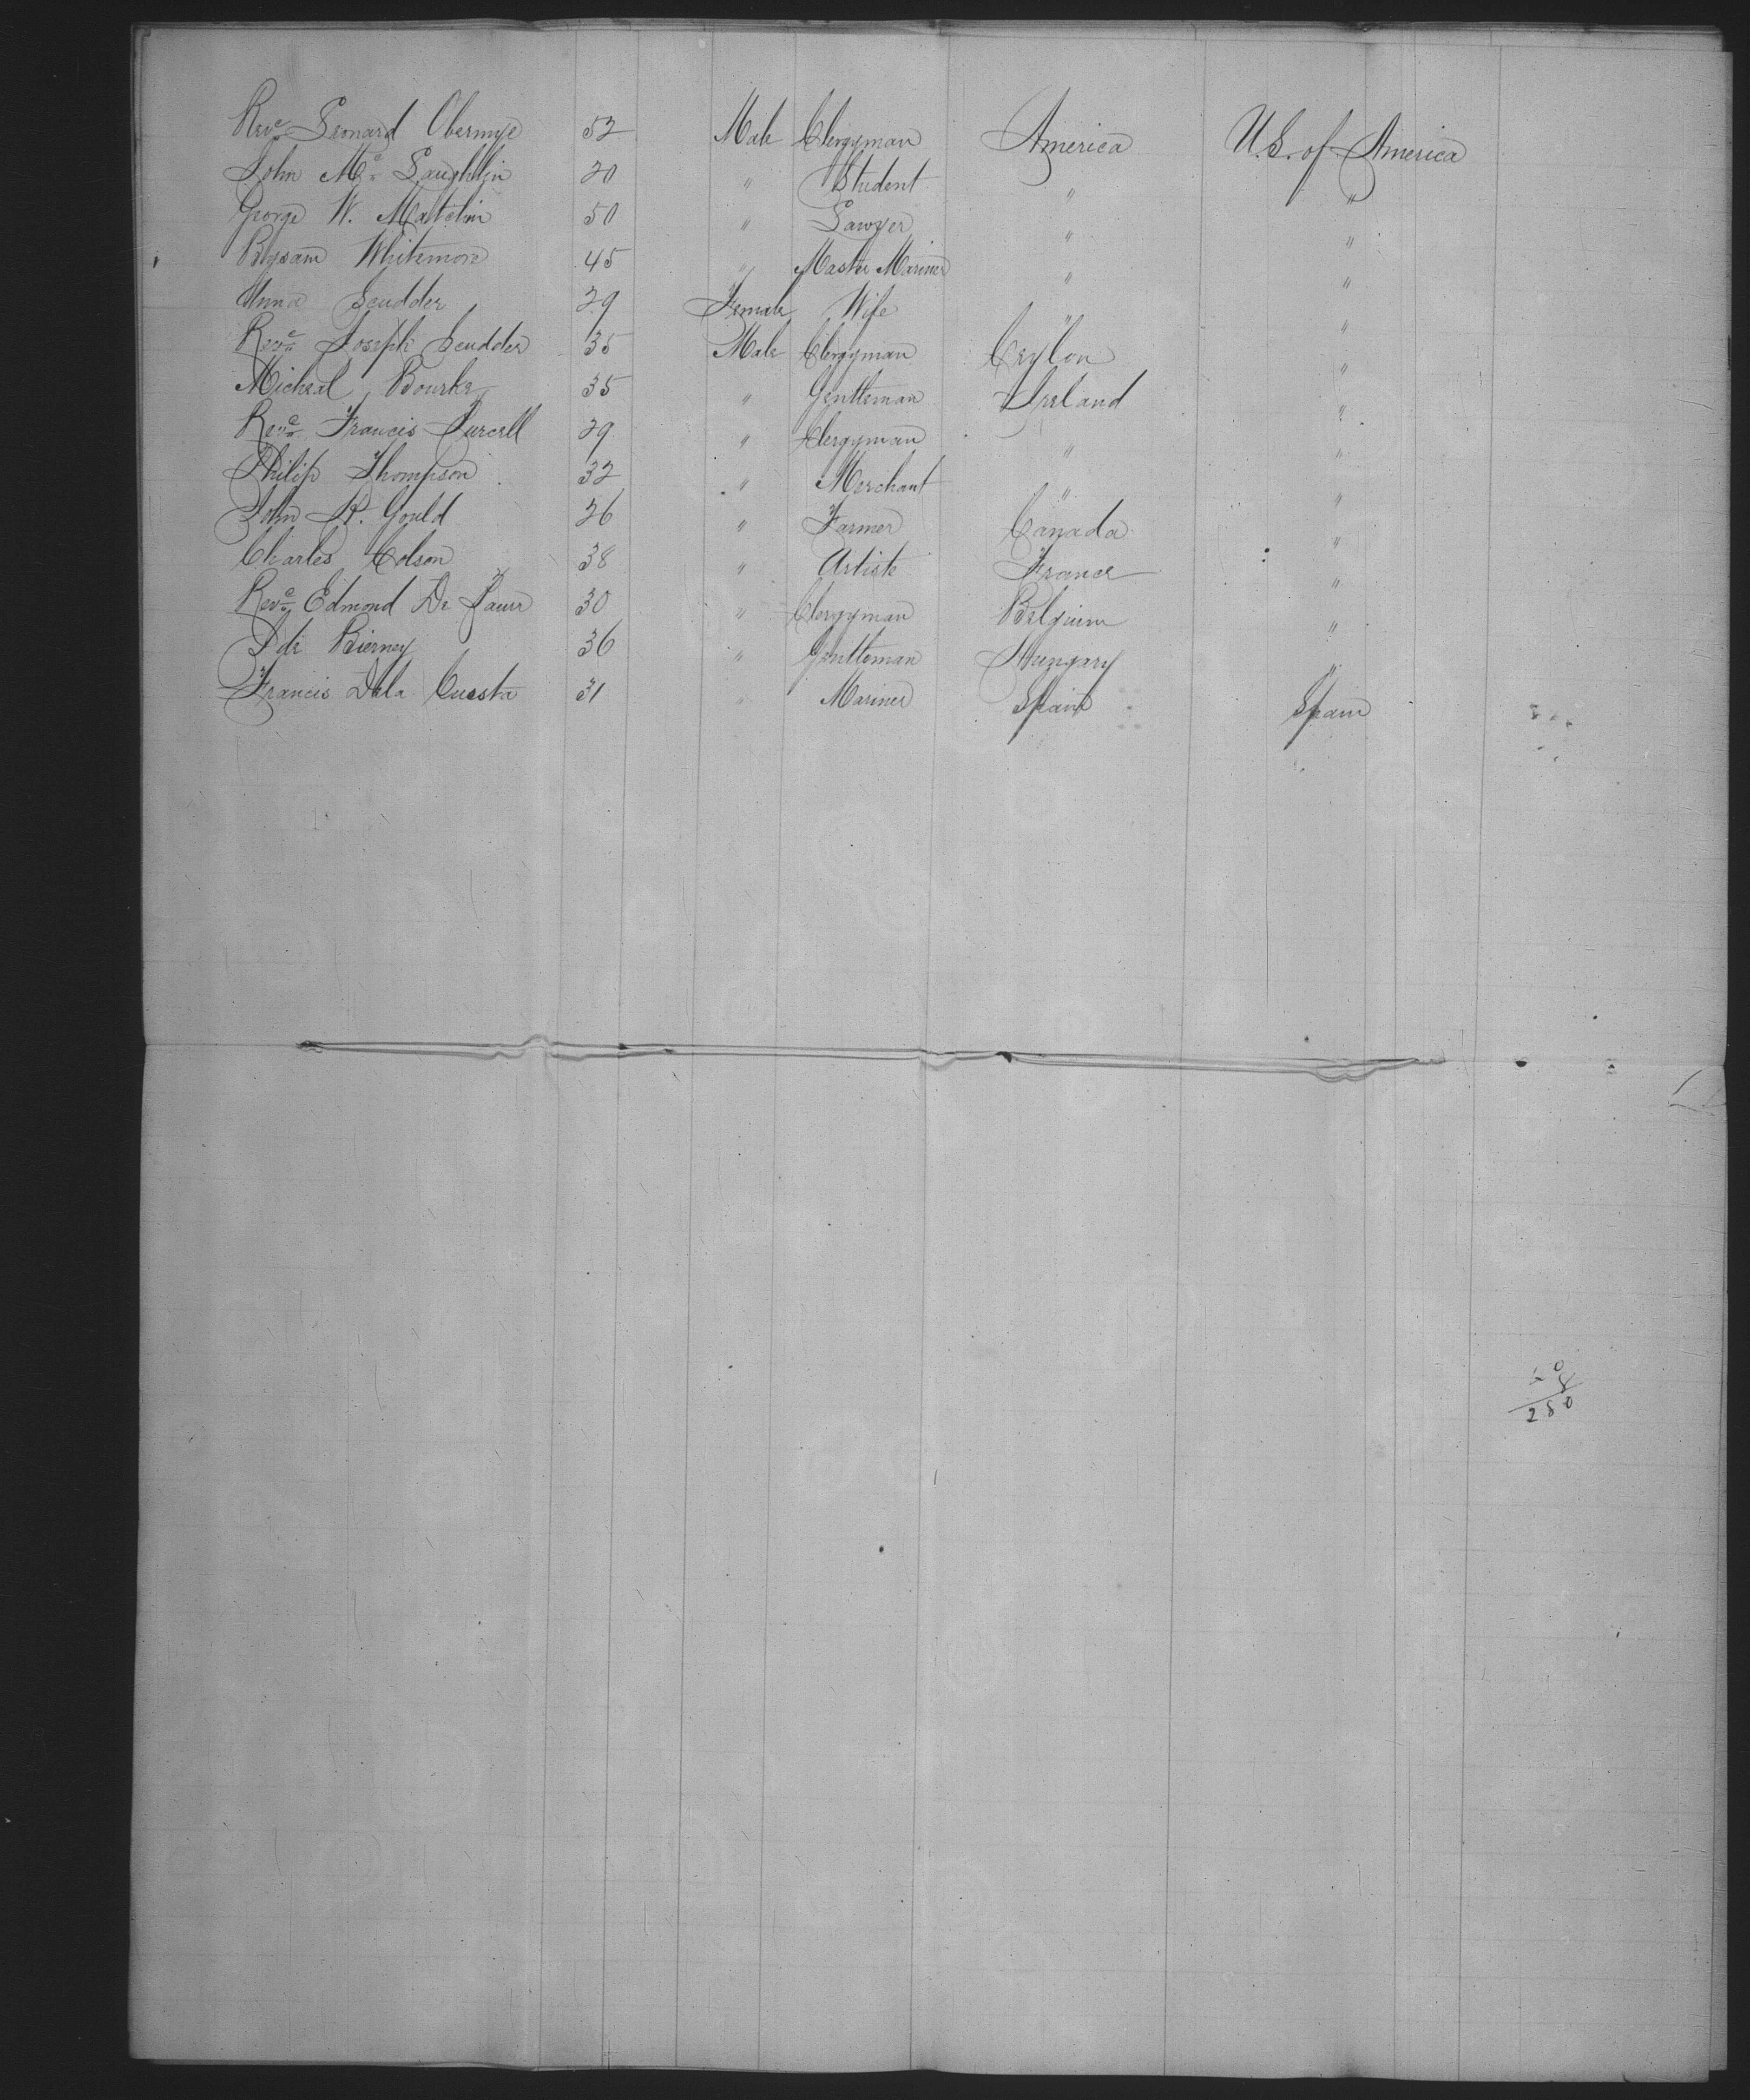 Revd Leonard Obermyer 52 Male Clergyman America U.S. of America
John Mc Laughlin 20 " Student " "
George W. Matchin 50 " Lawyer " "
Bysam Whitemore 45 " Master Mariner " "
Anna Scudder 29 Female Wife " "
Revd Joseph Scudder 35 Male Clergyman Ceylon "
Micheal Bourke 35 " Gentleman Ireland "
Revd Francis Purcell 29 " Clergyman " "
Philip Thompson 32 " Merchant " "
John R. Gould 26 " Farmer Canada "
Charles Colson 38 " Artiste France "
Revd Edmond De Pauw 30 " Clergyman Belgium "
de Bierney 36 " Gentleman Hungary "
Francis Dela Cuesta 31 " Mariner Spain Spain
280